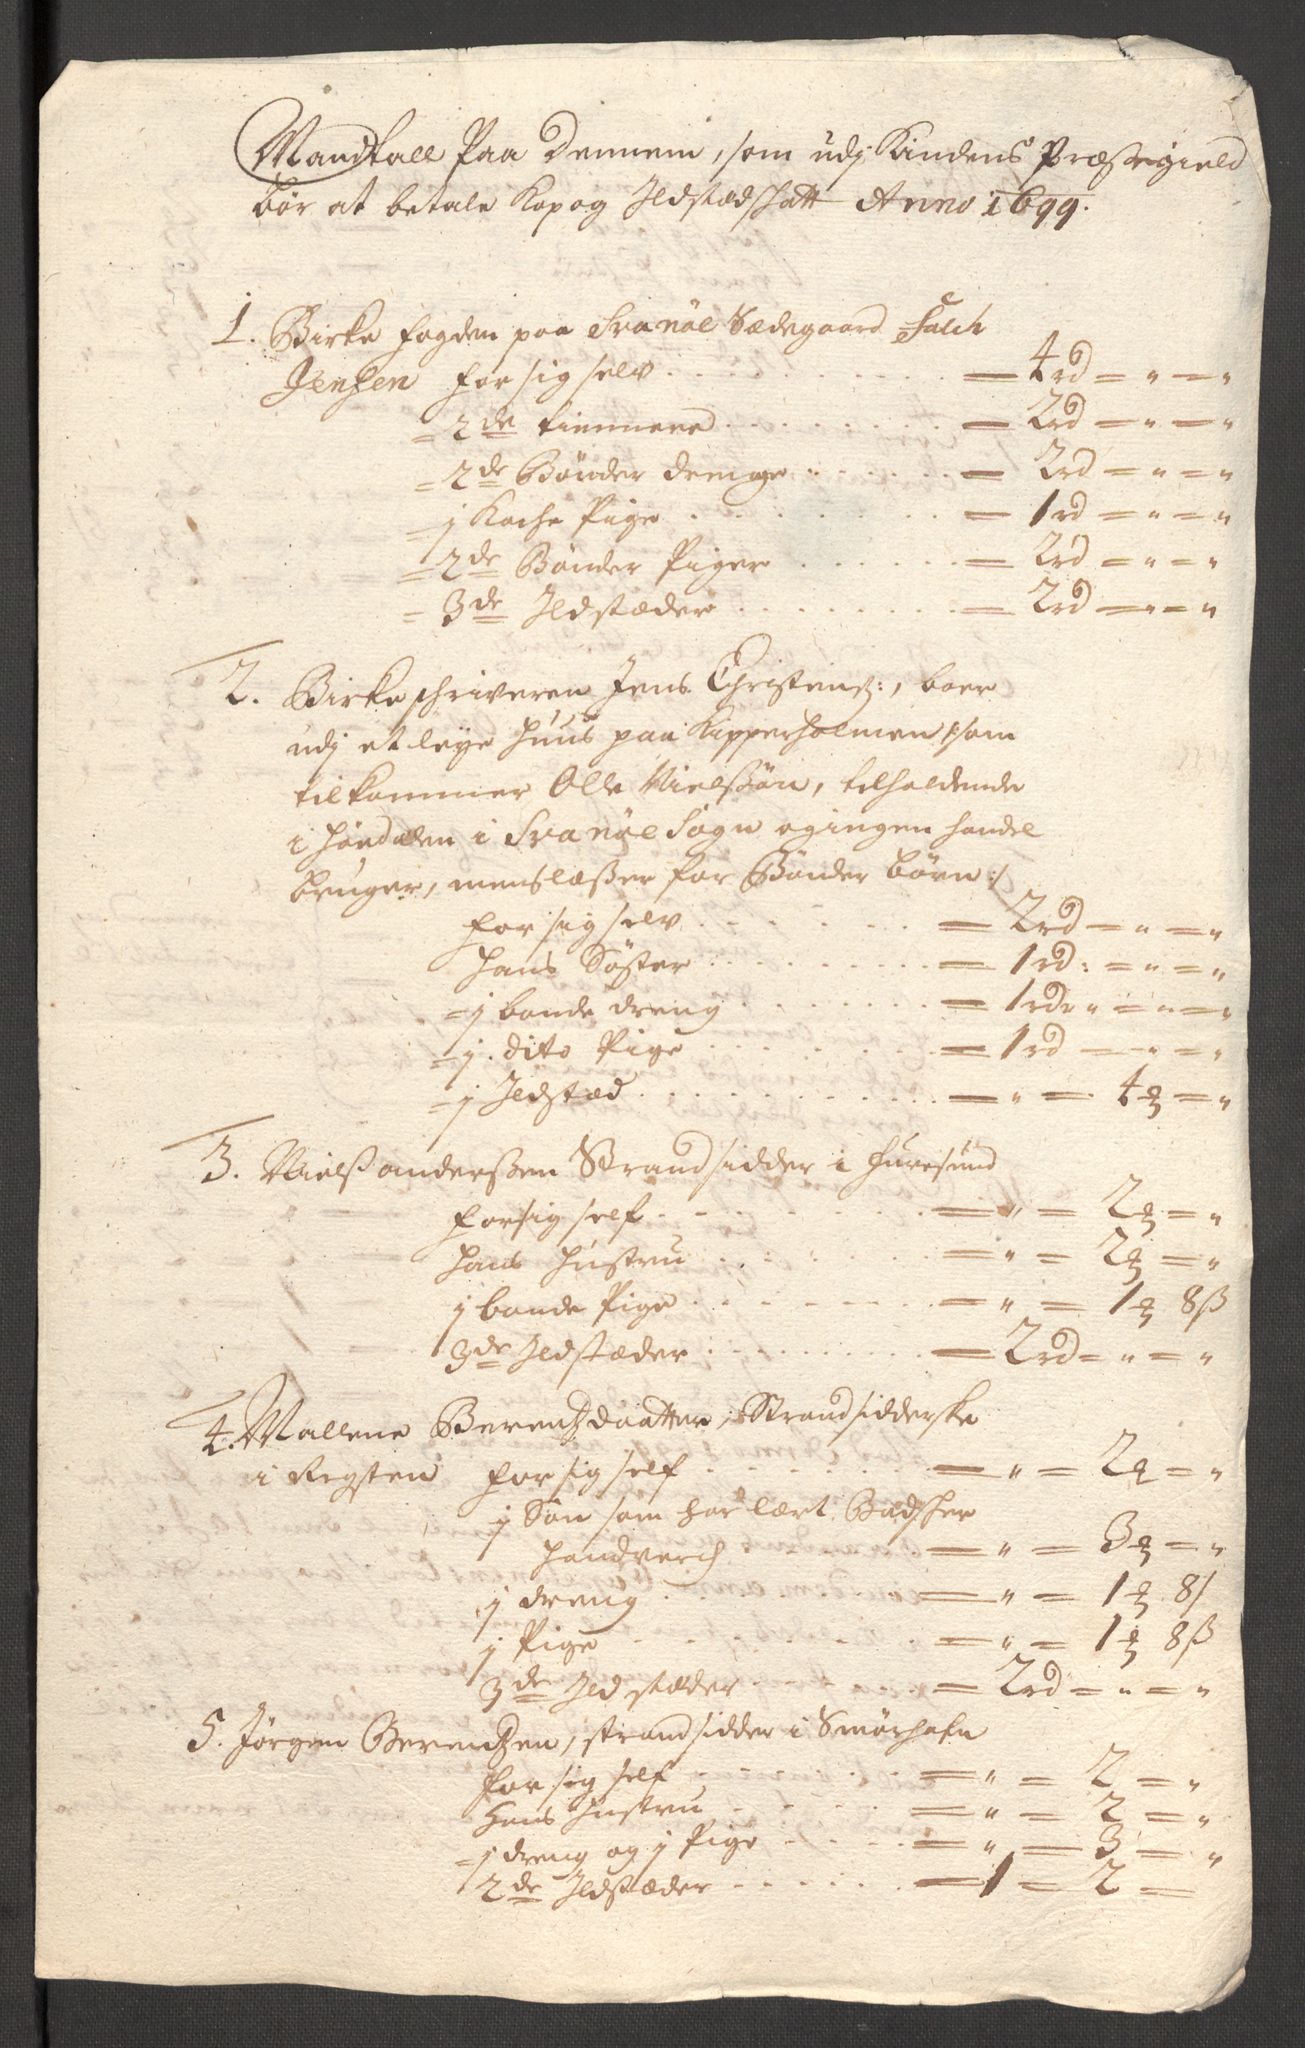 Mandtall Paa Dennem, som udj Kindens Præstegield
bør at betale Kop og Ildstædschatt Anno 1699.
1. Birke fogden paa Svanöe Sædegaard Falch
Jenssen for sig selv — 4 rd = " = "
= 2de tiennere — 2 rd = " = "
= 2de Bönder drenge — 2 rd = " = "
= j Koche Pige — 1 rd = " = "
= 2de Bönder Piger — 2 rd = " = "
= 3de Ildstæder — 2 rd = " = "
2. Birkeschriveren Jens Christens:, boer
udj et leye Huus paa Kipperholmen /: som
tilkommer Olle Nielssön, tilholdende
i Höedalen i Svanöe Sogn og ingen handel
bruger, mens læsser for Bönder börn :/
for sig selv — 2 rd = " = "
Hans Söster — 1 rd: = " = "
= j bonde dreng — 1 rd = " = "
= j dito Pige — 1 rd — " = "
= j Ildstæd — " = 4 ꝥ = "
3. Niels anderssen Strandsidder i Furesund
for sig self — " = 2 ꝥ = "
Hans Hustru — " = 2 ꝥ = "
j bonde Pige — " = 1 ꝥ 8 ß
3de Ildstæder — 2 rd = " = "
4. Mallene Berentzdaatter, Strandsidderske
i Rogsten for sig self — " = 2 ꝥ = "
j Sön som har lært Badscher
Handverch — " = 3 ꝥ = "
j dreng — " = 1 ꝥ 8 ß
j Pige — " = 1 ꝥ 8 ß
3de Ildstæder — 2 rd = " = "
5. Jørgen Berentzen, strandsidder i Smörhafn
for sig self — " = 2 = "
Hans Hustru — " = 2 = "
= j dreng og j Pige — " = 3 = "
2de Ildstæder — 1 = 2 =